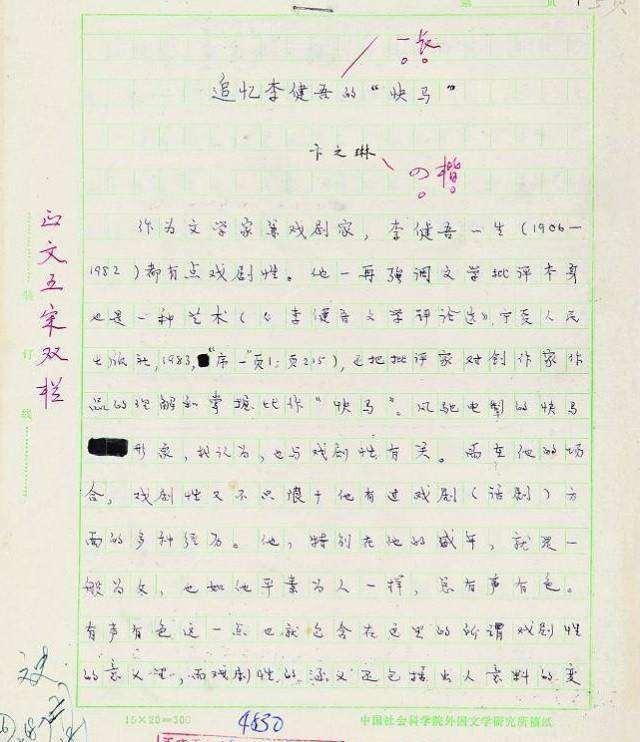 第 页
一长
追忆李健吾的“快马”
卞之琳
楷
作为文学家兼戏剧家，李健吾一生（1906—
1982）都有点戏剧性。他一再强调文学批评本身
也是一种艺术（《李健吾文学评论选》，宁夏人民
出版社，1983，“序一”页1；页215），还把批评家对创作家作
品的理解和掌握比作“快马”。风驰电掣的快马
形象，我认为，也与戏剧性有关。而在他的场
合，戏剧性又不只限于他有过戏剧（话剧）方
面的多种经历。他，特别在他的盛年，就是一
般为文，也如他平素为人一样，总有声有色。
有声有色这一点也就包含在这里的所谓戏剧性
的意义里，而戏剧性的涵义还包括出人意料的变
正文五宋双栏
装
订
线
15×20=300
4830
中国社会科学院外国文学研究所稿纸